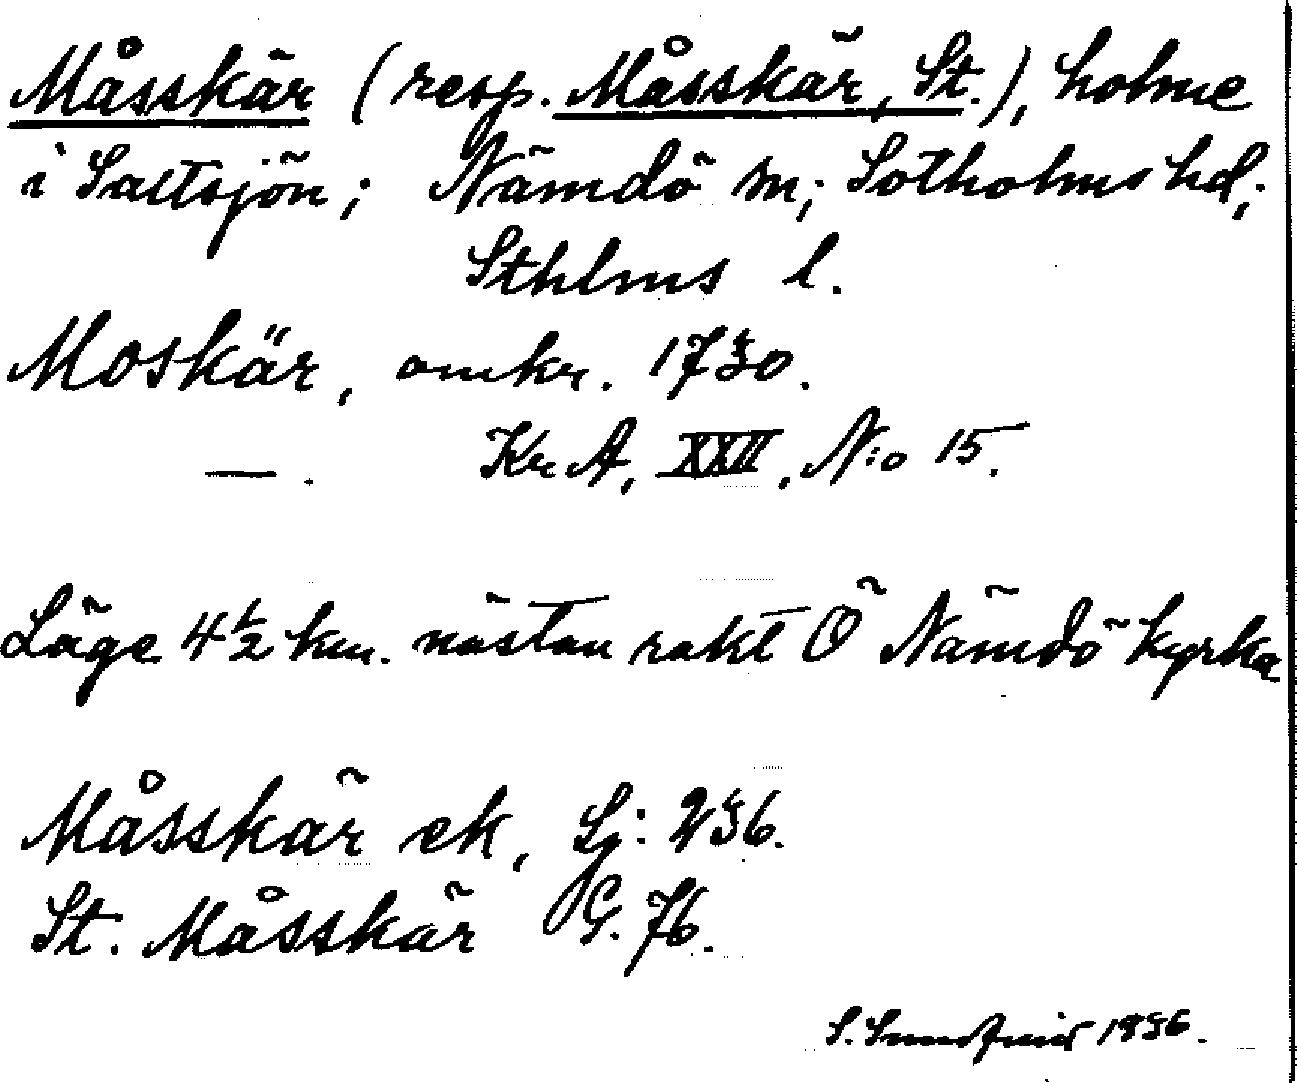 Måsskär (resp. Måsskär, St.), holme
i Saltsjön; Nämdö sn; Sotholms hd;
Sthlms l.
Moskär, omkr. 1730.
—. Kr A, XXII, N:o 15.
Läge 4 ½ km. nästan rakt Ö Nämdö kyrka
Måsskär ek, Lj: 236.
St. Måsskär G. 76.
S. 1936.